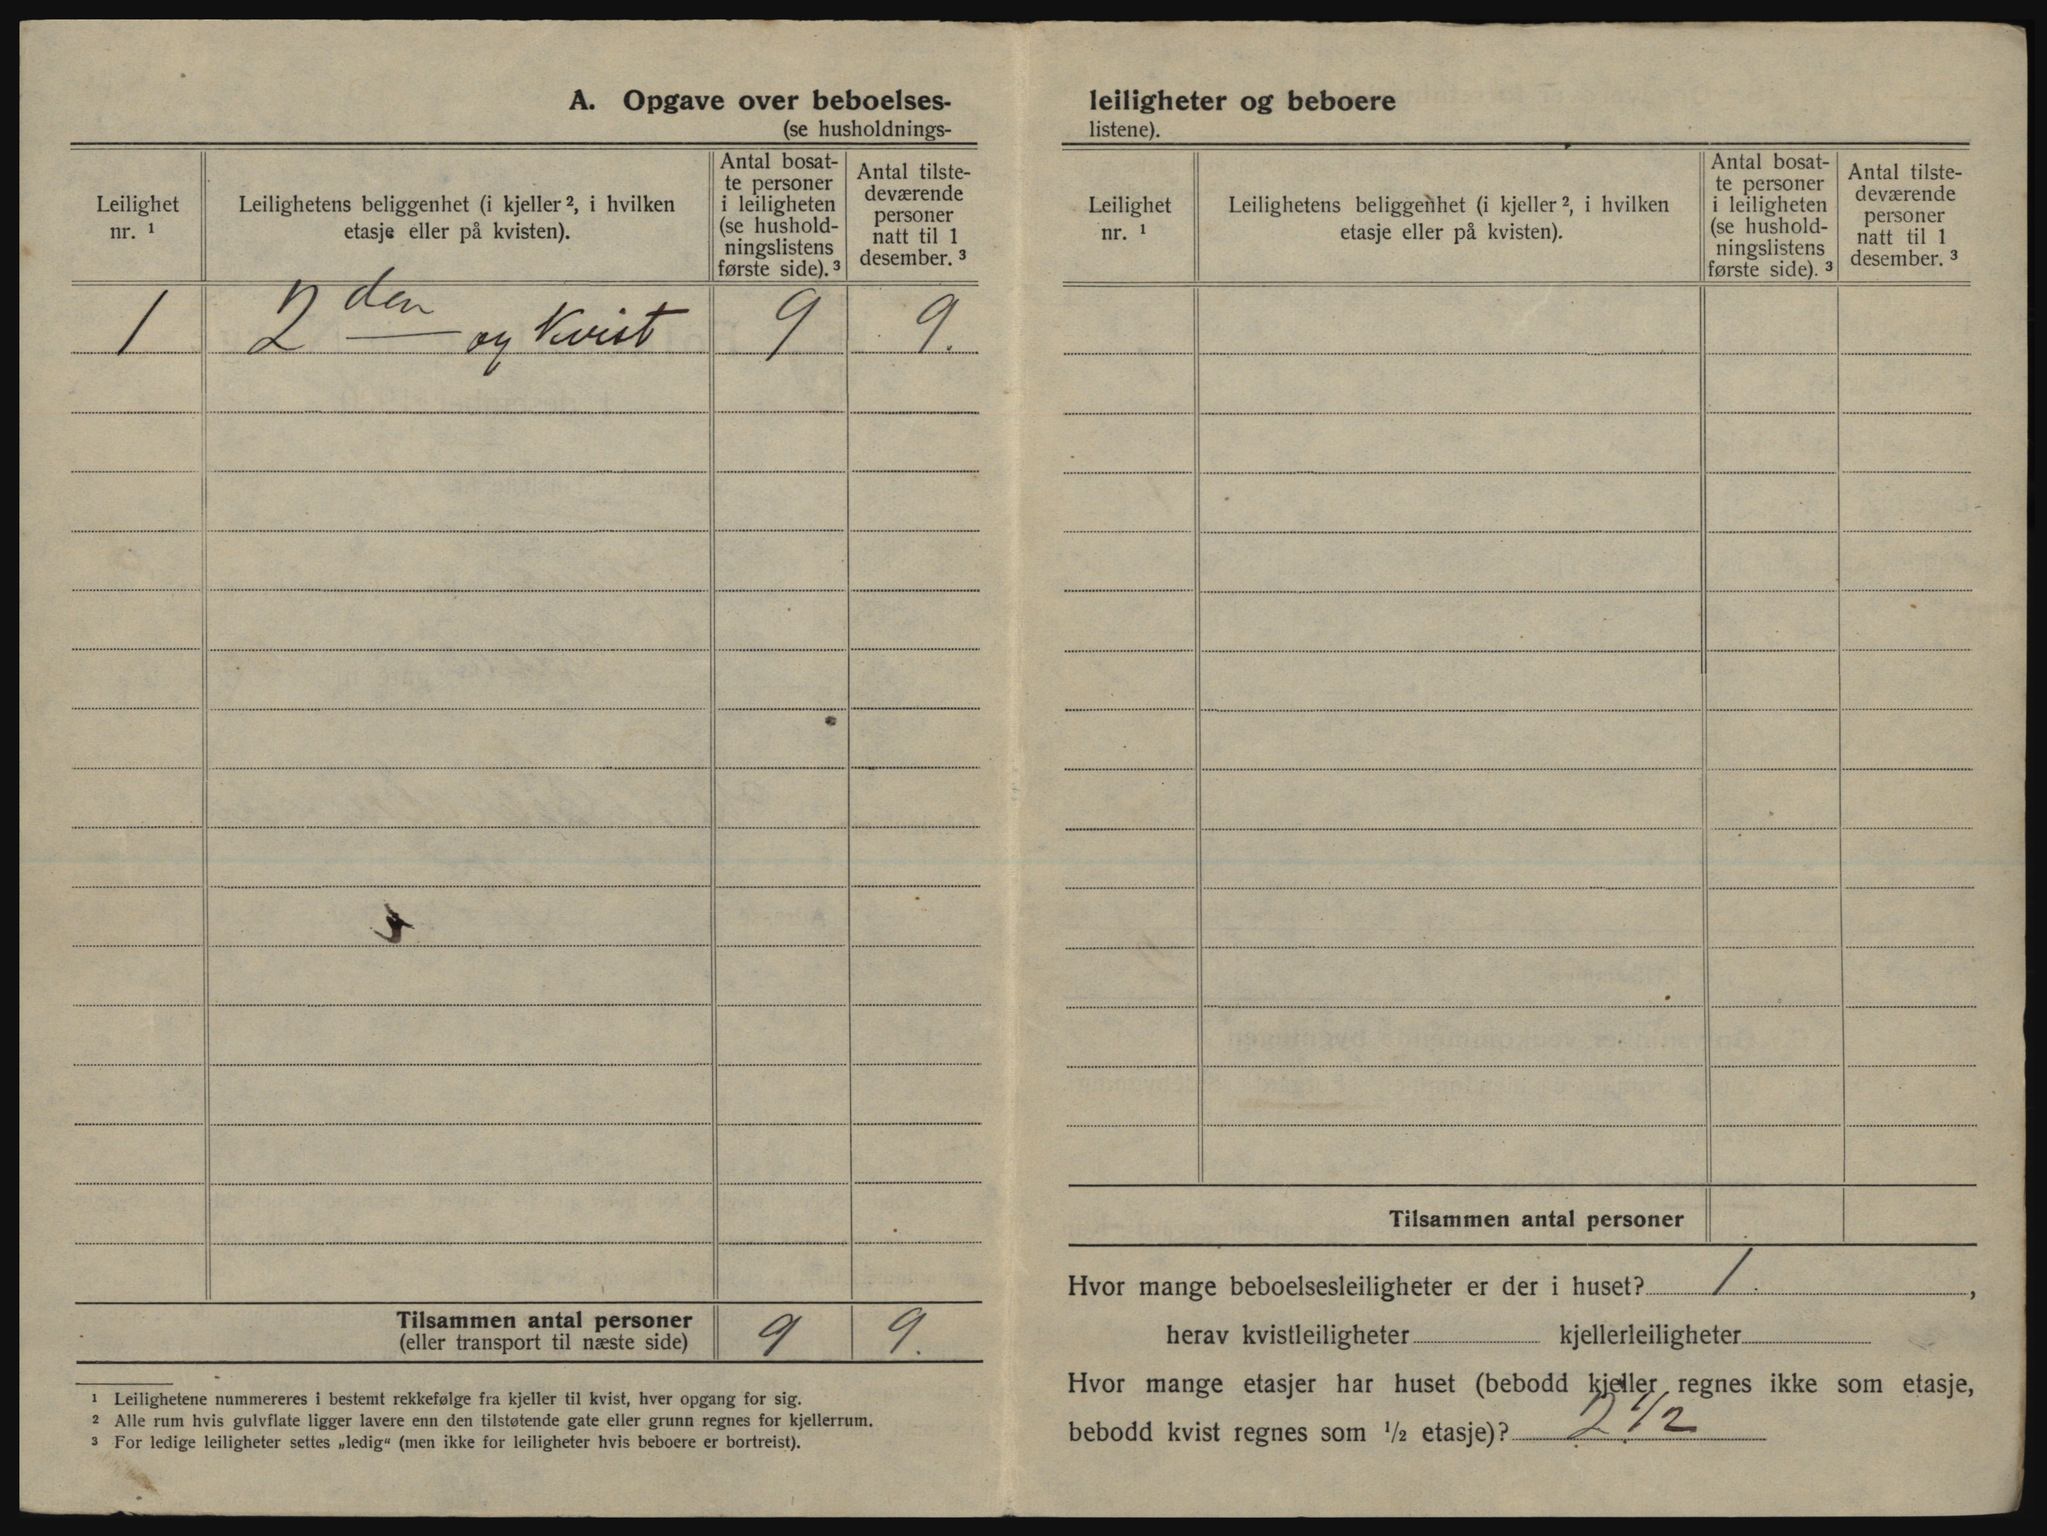 A. Opgave over beboelses-
(se husholdnings-
Leilighet
nr. ¹
Leilighetens beliggenhet (i kjeller ², i hvilken
etasje eller på kvisten).
Antal bosat-
te personer
i leiligheten
(se hushold-
ningslistens
første side). ³
Antal tilste-
deværende
personer
natt til 1
desember. ³
1 2den og Kvist 9 9.
Tilsammen antal personer 9 9.
(eller transport til næste side)
¹ Leilighetene nummereres i bestemt rekkefølge fra kjeller til kvist, hver opgang for sig.
² Alle rum hvis gulvflate ligger lavere enn den tilstøtende gate eller grunn regnes for kjellerrum.
³ For ledige leiligheter settes „ledig“ (men ikke for leiligheter hvis beboere er bortreist).
leiligheter og beboere
listene).
Leilighet
nr. ¹
Leilighetens beliggenhet (i kjeller ², i hvilken
etasje eller på kvisten).
Antal bosat-
te personer
i leiligheten
(se hushold-
ningslistens
første side). ³
Antal tilste-
deværende
personer
natt til 1
desember. ³
Tilsammen antal personer
Hvor mange beboelsesleiligheter er der i huset? 1.,
herav kvistleiligheter kjellerleiligheter
Hvor mange etasjer har huset (bebodd kjeller regnes ikke som etasje,
bebodd kvist regnes som ½ etasje)? 2 ½